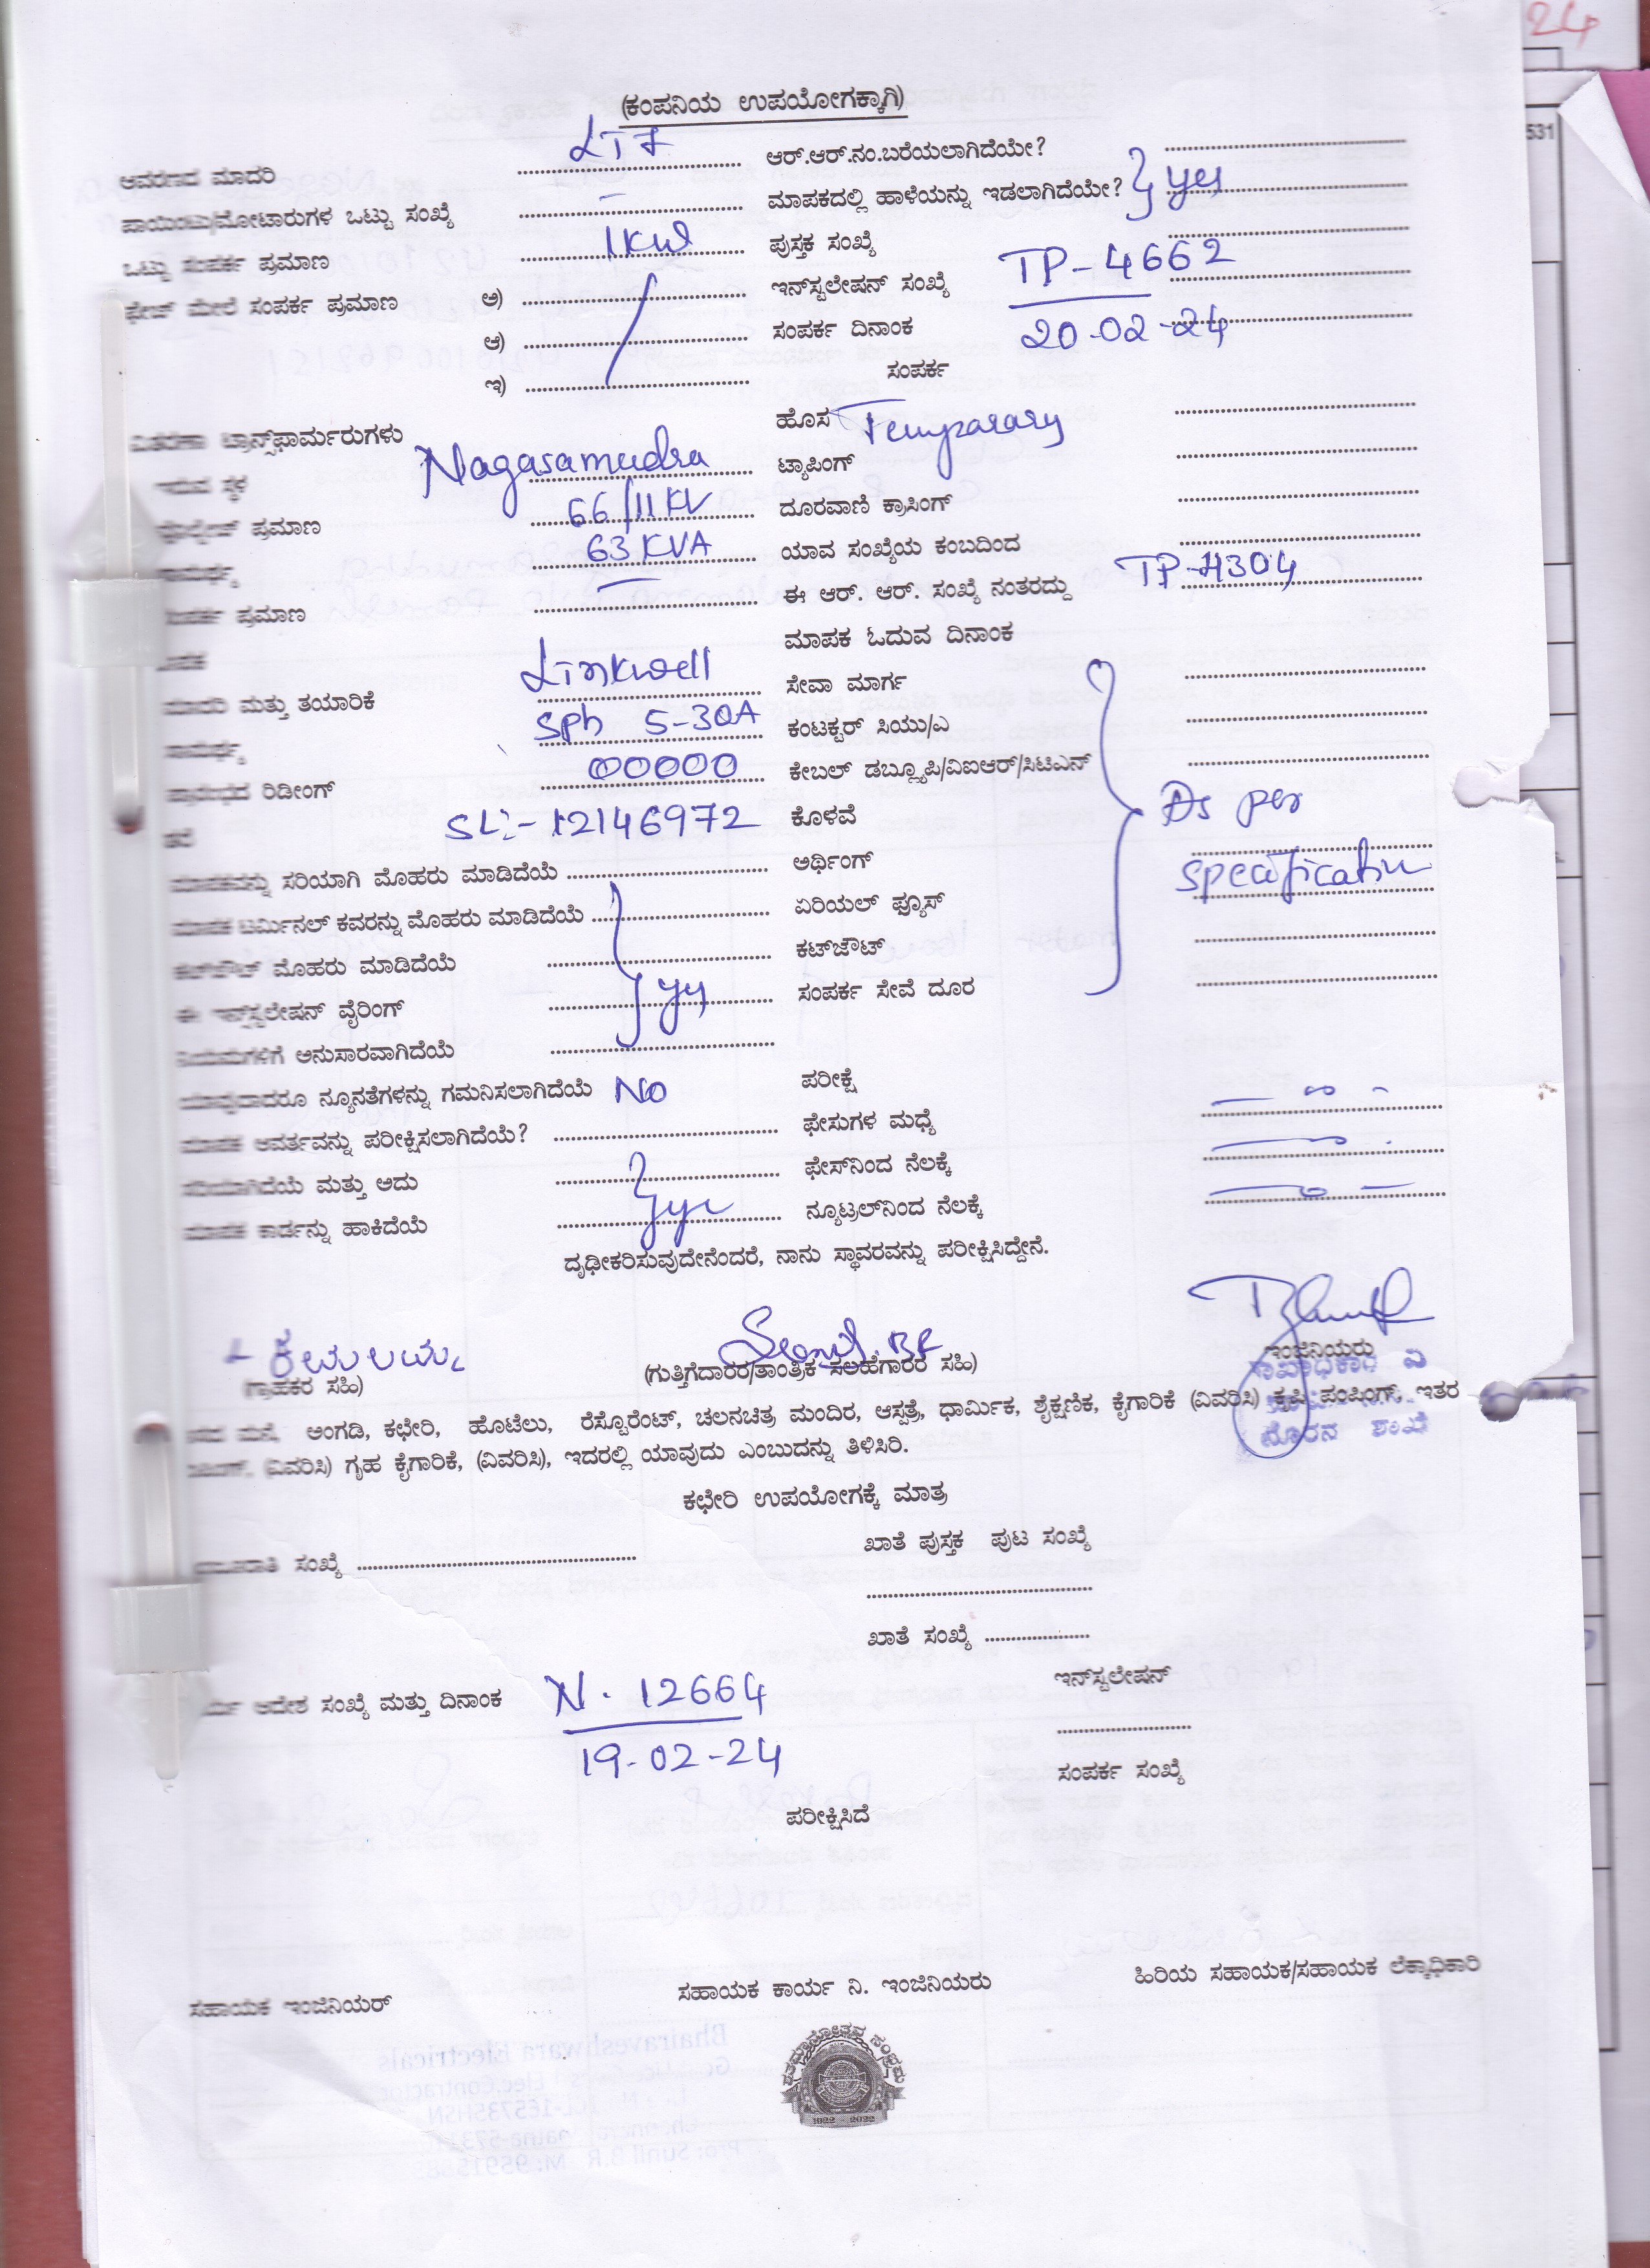 24
531
(ಕಂಪನಿಯ ಉಪಯೋಗಕ್ಕಾಗಿ)
ಆವರಣದ ಮಾದರಿ LT7 ಆರ್.ಆರ್.ನಂ.ಬರೆಯಲಾಗಿದೆಯೇ?
ಪಾಯಿಂಟು/ಮೋಟಾರುಗಳ ಒಟ್ಟು ಸಂಖ್ಯೆ – ಮಾಪಕದಲ್ಲಿ ಹಾಳೆಯನ್ನು ಇಡಲಾಗಿದೆಯೇ? } yes
ಒಟ್ಟು ಸಂಪರ್ಕ ಪ್ರಮಾಣ 1KW ಪುಸ್ತಕ ಸಂಖ್ಯೆ
ಫೇಜ್ ಮೇಲೆ ಸಂಪರ್ಕ ಪ್ರಮಾಣ ಅ) ಇನ್‌ಸ್ಟಲೇಷನ್ ಸಂಖ್ಯೆ TP-4662
ಆ) ಸಂಪರ್ಕ ದಿನಾಂಕ 20-02-24
ಇ) ಸಂಪರ್ಕ
ವಿತರಣಾ ಟ್ರಾನ್ಸ್‌ಫಾರ್ಮರುಗಳು ಹೊಸ Temparary
ಇರುವ ಸ್ಥಳ Nagasamudra ಟ್ಯಾಪಿಂಗ್
ವೋಲ್ಟೇಜ್ ಪ್ರಮಾಣ 66/11KV ದೂರವಾಣಿ ಕ್ರಾಸಿಂಗ್
ಸಾಮರ್ಥ್ಯ 63 KVA ಯಾವ ಸಂಖ್ಯೆಯ ಕಂಬದಿಂದ
ಸಂಪರ್ಕ ಪ್ರಮಾಣ – ಈ ಆರ್. ಆರ್. ಸಂಖ್ಯೆ ನಂತರದ್ದು TP-4304
ಮಾಪಕ ಓದುವ ದಿನಾಂಕ
ಮಾದರಿ ಮತ್ತು ತಯಾರಿಕೆ Linkwell ಸೇವಾ ಮಾರ್ಗ
ಸಾಮರ್ಥ್ಯ Sph 5-30A ಕಂಟಕ್ಟರ್ ಸಿಯು/ಎ
ಪ್ರಾರಂಭದ ರಿಡೀಂಗ್ 00000 ಕೇಬಲ್ ಡಬ್ಲ್ಯೂಪಿ/ವಿಐಆರ್/ಸಿಟಿಎನ್
SL:- 12146972 ಕೊಳವೆ As per
ಮಾಪಕವನ್ನು ಸರಿಯಾಗಿ ಮೊಹರು ಮಾಡಿದೆಯೆ ಅರ್ಥಿಂಗ್ specification
ಮಾಪಕ ಟರ್ಮಿನಲ್ ಕವರನ್ನು ಮೊಹರು ಮಾಡಿದೆಯೆ ಏರಿಯಲ್ ಫ್ಯೂಸ್
ಕಟ್‌ಔಟ್ ಮೊಹರು ಮಾಡಿದೆಯೆ ಕಟ್‌ಔಟ್
ಈ ಇನ್‌ಸ್ಟಲೇಷನ್ ವೈರಿಂಗ್ } yes ಸಂಪರ್ಕ ಸೇವೆ ದೂರ
ನಿಯಮಗಳಿಗೆ ಅನುಸಾರವಾಗಿದೆಯೆ
ಯಾವುದಾದರೂ ನ್ಯೂನತೆಗಳನ್ನು ಗಮನಿಸಲಾಗಿದೆಯೆ NO ಪರೀಕ್ಷೆ
ಮಾಪಕ ಆವರ್ತವನ್ನು ಪರೀಕ್ಷಿಸಲಾಗಿದೆಯೆ? ಫೇಸುಗಳ ಮಧ್ಯೆ
ಸರಿಯಾಗಿದೆಯೆ ಮತ್ತು ಅದು ಫೇಸ್‌ನಿಂದ ನೆಲಕ್ಕೆ
ಮಾಪಕ ಕಾರ್ಡನ್ನು ಹಾಕಿದೆಯೆ } yes ನ್ಯೂಟ್ರಲ್‌ನಿಂದ ನೆಲಕ್ಕೆ
ದೃಢೀಕರಿಸುವುದೇನೆಂದರೆ, ನಾನು ಸ್ಥಾವರವನ್ನು ಪರೀಕ್ಷಿಸಿದ್ದೇನೆ.
(ಗ್ರಾಹಕರ ಸಹಿ) (ಗುತ್ತಿಗೆದಾರರ/ತಾಂತ್ರಿಕ ಸಲಹೆಗಾರರ ಸಹಿ) ಇಂಜಿನಿಯರು
ಮನೆ, ಅಂಗಡಿ, ಕಛೇರಿ, ಹೊಟೆಲು, ರೆಸ್ಟೊರೆಂಟ್, ಚಲನಚಿತ್ರ ಮಂದಿರ, ಆಸ್ಪತ್ರೆ, ಧಾರ್ಮಿಕ, ಶೈಕ್ಷಣಿಕ, ಕೈಗಾರಿಕೆ (ವಿವರಿಸಿ) ಕೃಷಿ ಪಂಪಿಂಗ್, ಇತರ
(ವಿವರಿಸಿ) ಗೃಹ ಕೈಗಾರಿಕೆ, (ವಿವರಿಸಿ), ಇದರಲ್ಲಿ ಯಾವುದು ಎಂಬುದನ್ನು ತಿಳಿಸಿರಿ.
ಕಛೇರಿ ಉಪಯೋಗಕ್ಕೆ ಮಾತ್ರ
ಸಂಖ್ಯೆ ಖಾತೆ ಪುಸ್ತಕ ಪುಟ ಸಂಖ್ಯೆ
ಖಾತೆ ಸಂಖ್ಯೆ
ಆದೇಶ ಸಂಖ್ಯೆ ಮತ್ತು ದಿನಾಂಕ N. 12664 ಇನ್‌ಸ್ಟಲೇಷನ್
19-02-24 ಸಂಪರ್ಕ ಸಂಖ್ಯೆ
ಪರೀಕ್ಷಿಸಿದೆ
ಸಹಾಯಕ ಇಂಜಿನಿಯರ್ ಸಹಾಯಕ ಕಾರ್ಯ ನಿ. ಇಂಜಿನಿಯರು ಹಿರಿಯ ಸಹಾಯಕ/ಸಹಾಯಕ ಲೆಕ್ಕಾಧಿಕಾರಿ
1922 - 2022